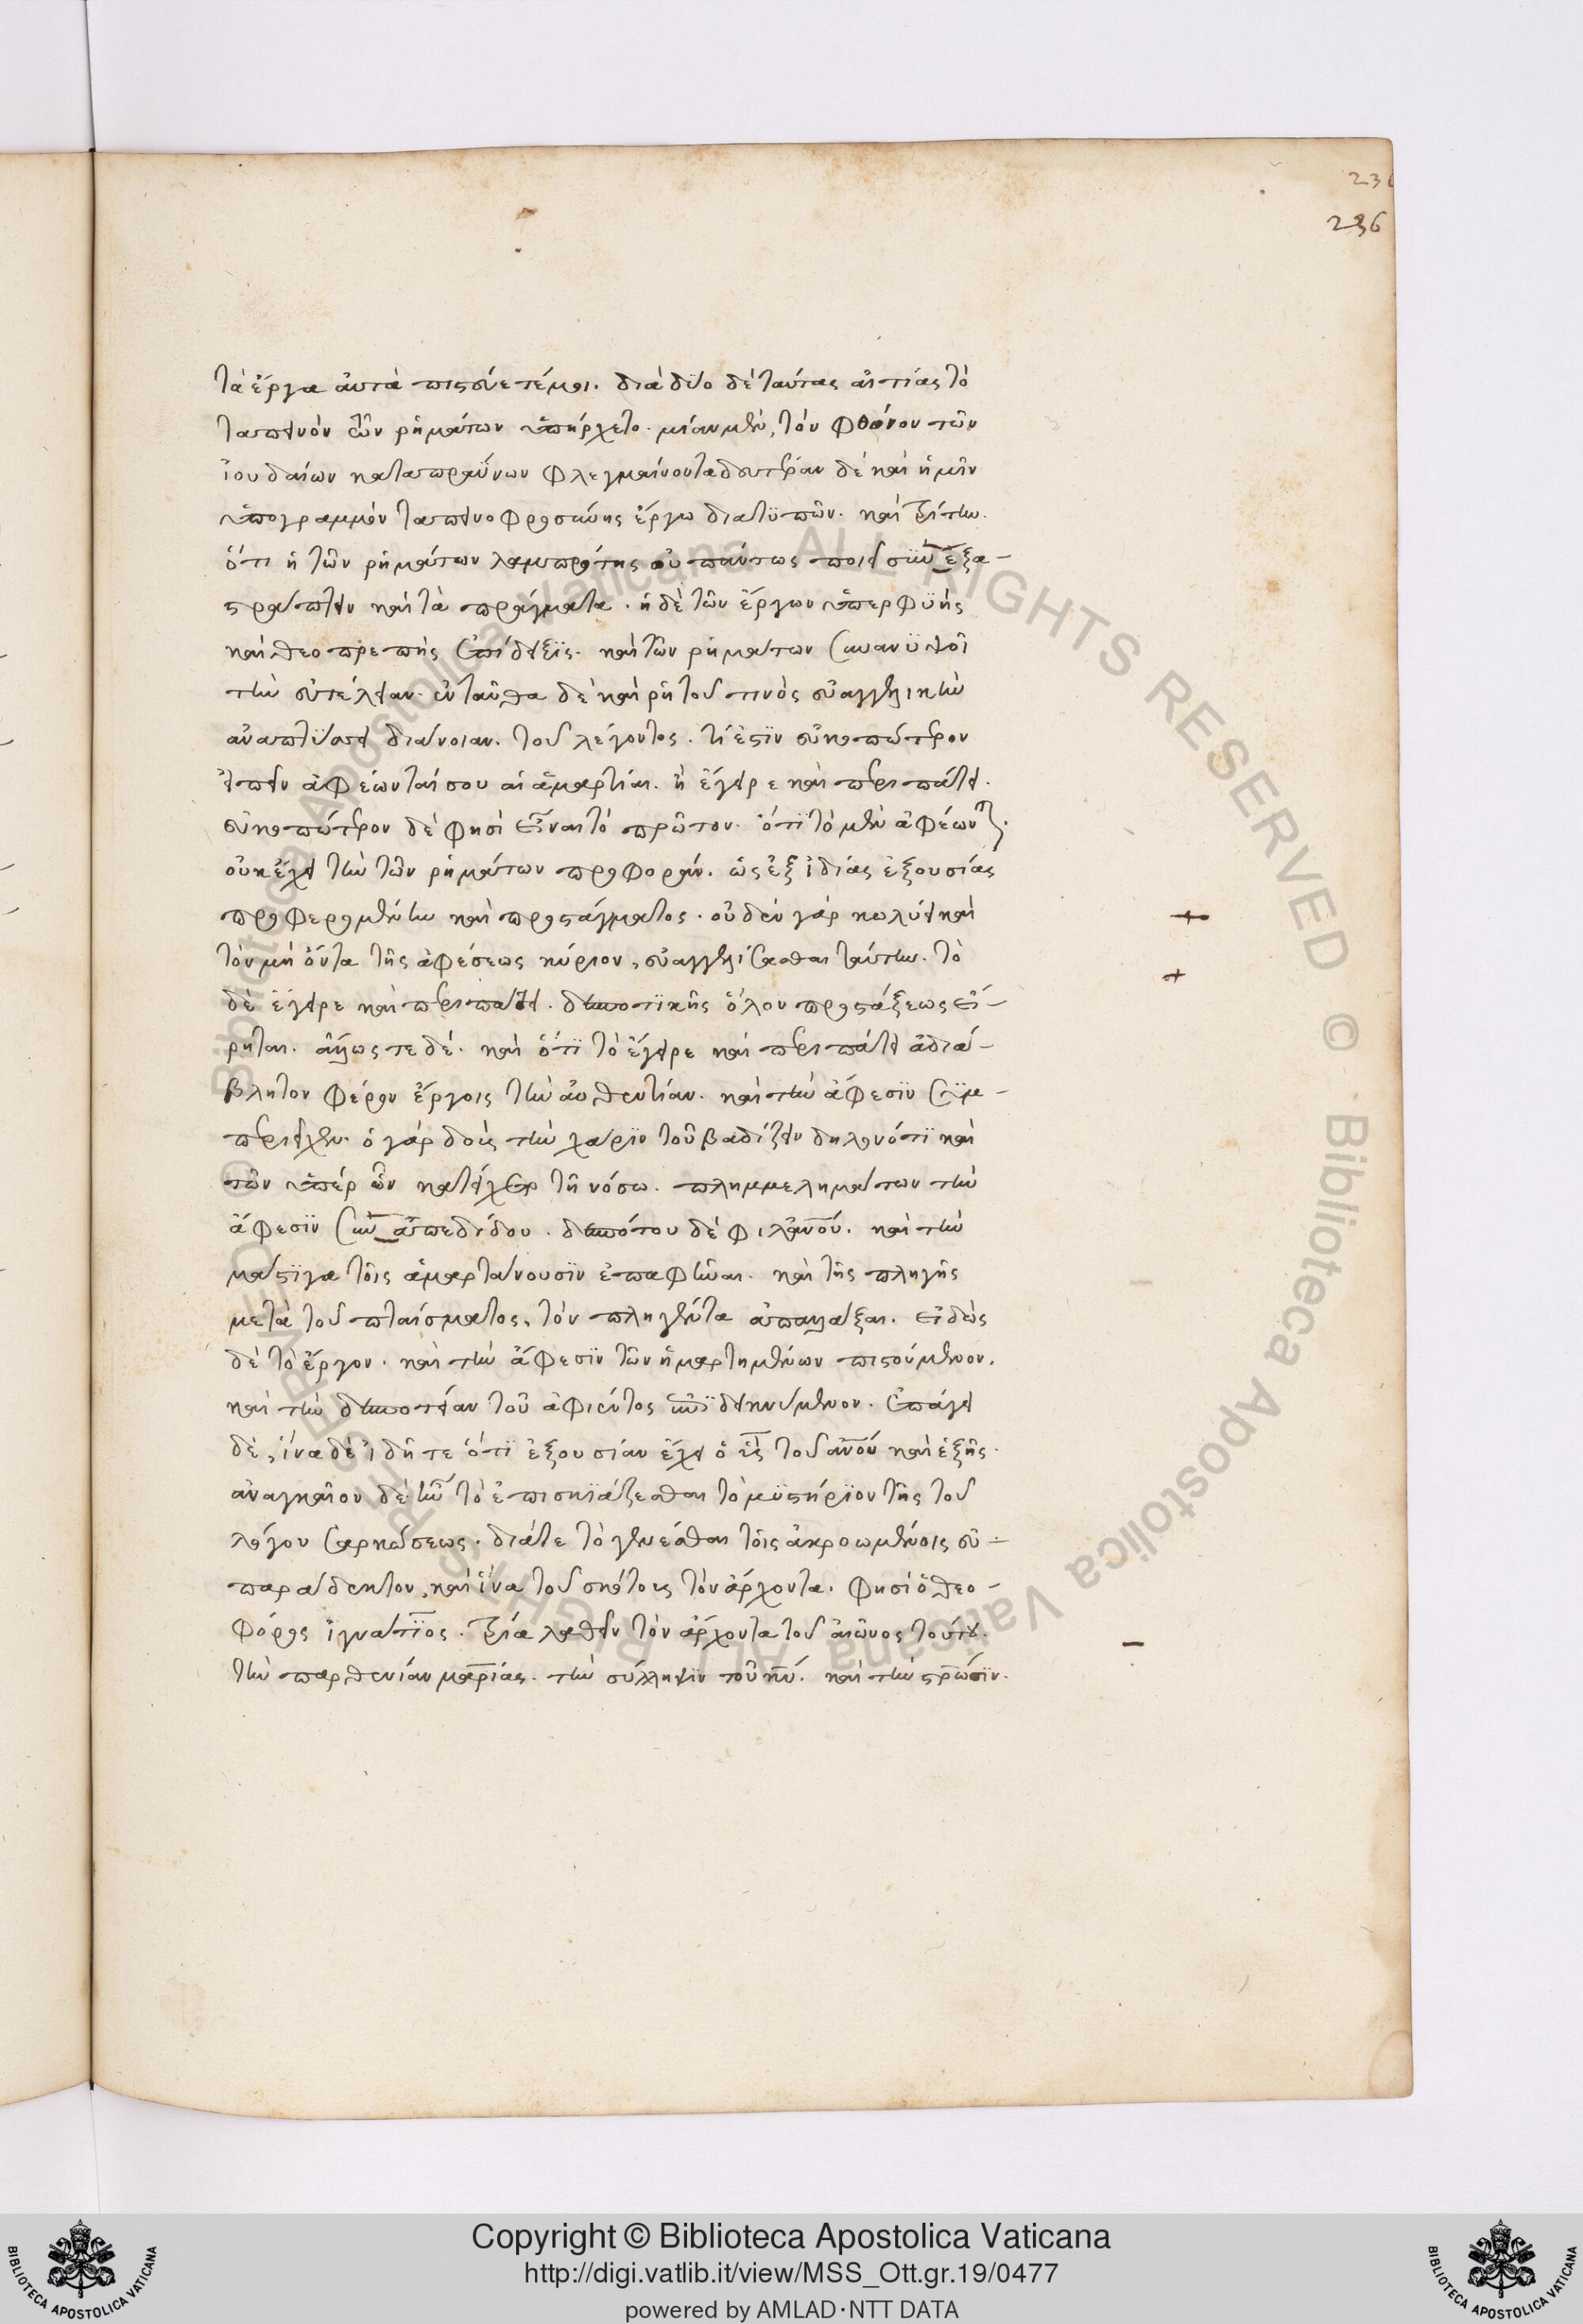 236
236
τὰ ἔργα αὐτὰ πιστεύετέ μοι. διὰ δύο δὲ ταύτας αἰτίας τὸ
ταπεινὸν τῶν ῥημάτων ὑπήρχετο. μίαν μὲν, τὸν φθόνον τῶν
ἰουδαίων καταπραΰνων φλεγμαίνοντα δευτέραν δὲ καὶ ἡμῖν
ὑπογραμμὸν ταπεινοφροσύνης ἔργω διατϋπῶν. καὶ τρίτην.
ὅτι ἡ τῶν ῥημάτων λαμπρότης οὐ πάντως ποιεῖ συνεξα-
στράπτειν καὶ τὰ πράγματα. ἡ δὲ τῶν ἔργων ὑπερφϋὴς
καὶ θεοπρεπὴς ἐπίδειξϊς. καὶ τῶν ῥημάτων συνανϋψοῖ
τὴν εὐτέλειαν. ἐνταῦθα δὲ καὶ ῥητοῦ τινὸς εὐαγγελικὴν
ἀναπτύσσει διάνοιαν. τοῦ λέγοντος. τί ἐστϊν εὐκοπώτερον
εἰπεῖν ἀφέωνταί σου αἱ ἁμαρτίαι. ἢ ἔγειρε καὶ περιπάτει.
εὐκοπώτερον δὲ φησὶ εἶναι τὸ πρῶτον. ὅτϊ τὸ μὲν ἀφέωνται.
οὐκ ἔχει τὴν τῶν ῥημάτων προφοράν. ὡς ἐξ ἰδίας ἐξουσίας
προφερομένην καὶ προστάγματος. οὐδὲν γὰρ κωλύει καὶ
τὸν μὴ ὄντα τῆς ἀφέσεως κύριον, εὐαγγελίσασθαι ταύτην. τὸ
δὲ ἔγειρε καὶ περιπάτει. δεσποτϊκῆς ὅλον προστάξεως εἴ-
ρηται. ἄλλως τε δέ. καὶ ὅτϊ τὸ ἔγειρε καὶ περιπάτει ἀδιά-
βλητον φέρον ἔργοις τὴν αὐθεντίαν. καὶ τὴν ἄφεσϊν συμ-
περιέχει. ὁ γὰρ δοὺς τὴν χάρϊν τοῦ βαδίζειν δηλονότϊ καὶ
τῶν ὑπὲρ ὧν κατείχετο τῆ νόσω. πλημμελημάτων τὴν
ἄφεσϊν συναπεδίδου. δεσπότου δὲ φιλανου. καὶ τὴν
μάστϊγα τοῖς ἁμαρτάνουσϊν ἐπαφεῖναι. καὶ τῆς πληγῆς
μετὰ τοῦ πταίσματος, τὸν πληγέντα ἀπαλλάξαι. εἰδὼς
δὲ τὸ ἔργον. καὶ τὴν ἄφεσϊν τῶν ἡμαρτημένων πιστούμενον.
καὶ τὴν δεσποτείαν τοῦ ἀφιέντος δεικνύμενον. ἐπάγει
δὲ, ἵνα δὲ ἰδῆτε ὅτϊ ἐξουσίαν ἔχει ὁ υς τοῦ ανου καὶ ἑξῆς.
ἀναγκαῖον δὲ ἦν τὸ ἐπισκϊάζεσθαι τὸ μϋστήρϊον τῆς τοῦ
λόγου σαρκώσεως. διά τε τὸ γενέσθαι τοῖς ἀκροωμένοις εὐ-
παράδεκτον, καὶ ἵνα τοῦ σκότους τὸν ἄρχοντα. φησὶ ὁ θεο-
φόρος ἰγνάτϊος. τρία λαθεῖν τὸν ἄρχοντα τοῦ αἰῶνος τούτου.
τὴν παρθενίαν μαρίας. τὴν σύλληψϊν τοῦ κυ. καὶ τὴν στρωσϊν.
Copyright © Biblioteca Apostolica Vaticana
http://digi.vatlib.it/view/MSS_Ott.gr.19/0477
powered by AMLAD·NTT DATA
BIBLIOTECA APOSTOLICA VATICANA
BIBLIOTECA APOSTOLICA VATICANA
© Biblioteca Apostolica Vaticana ALL RIGHTS RESERVED